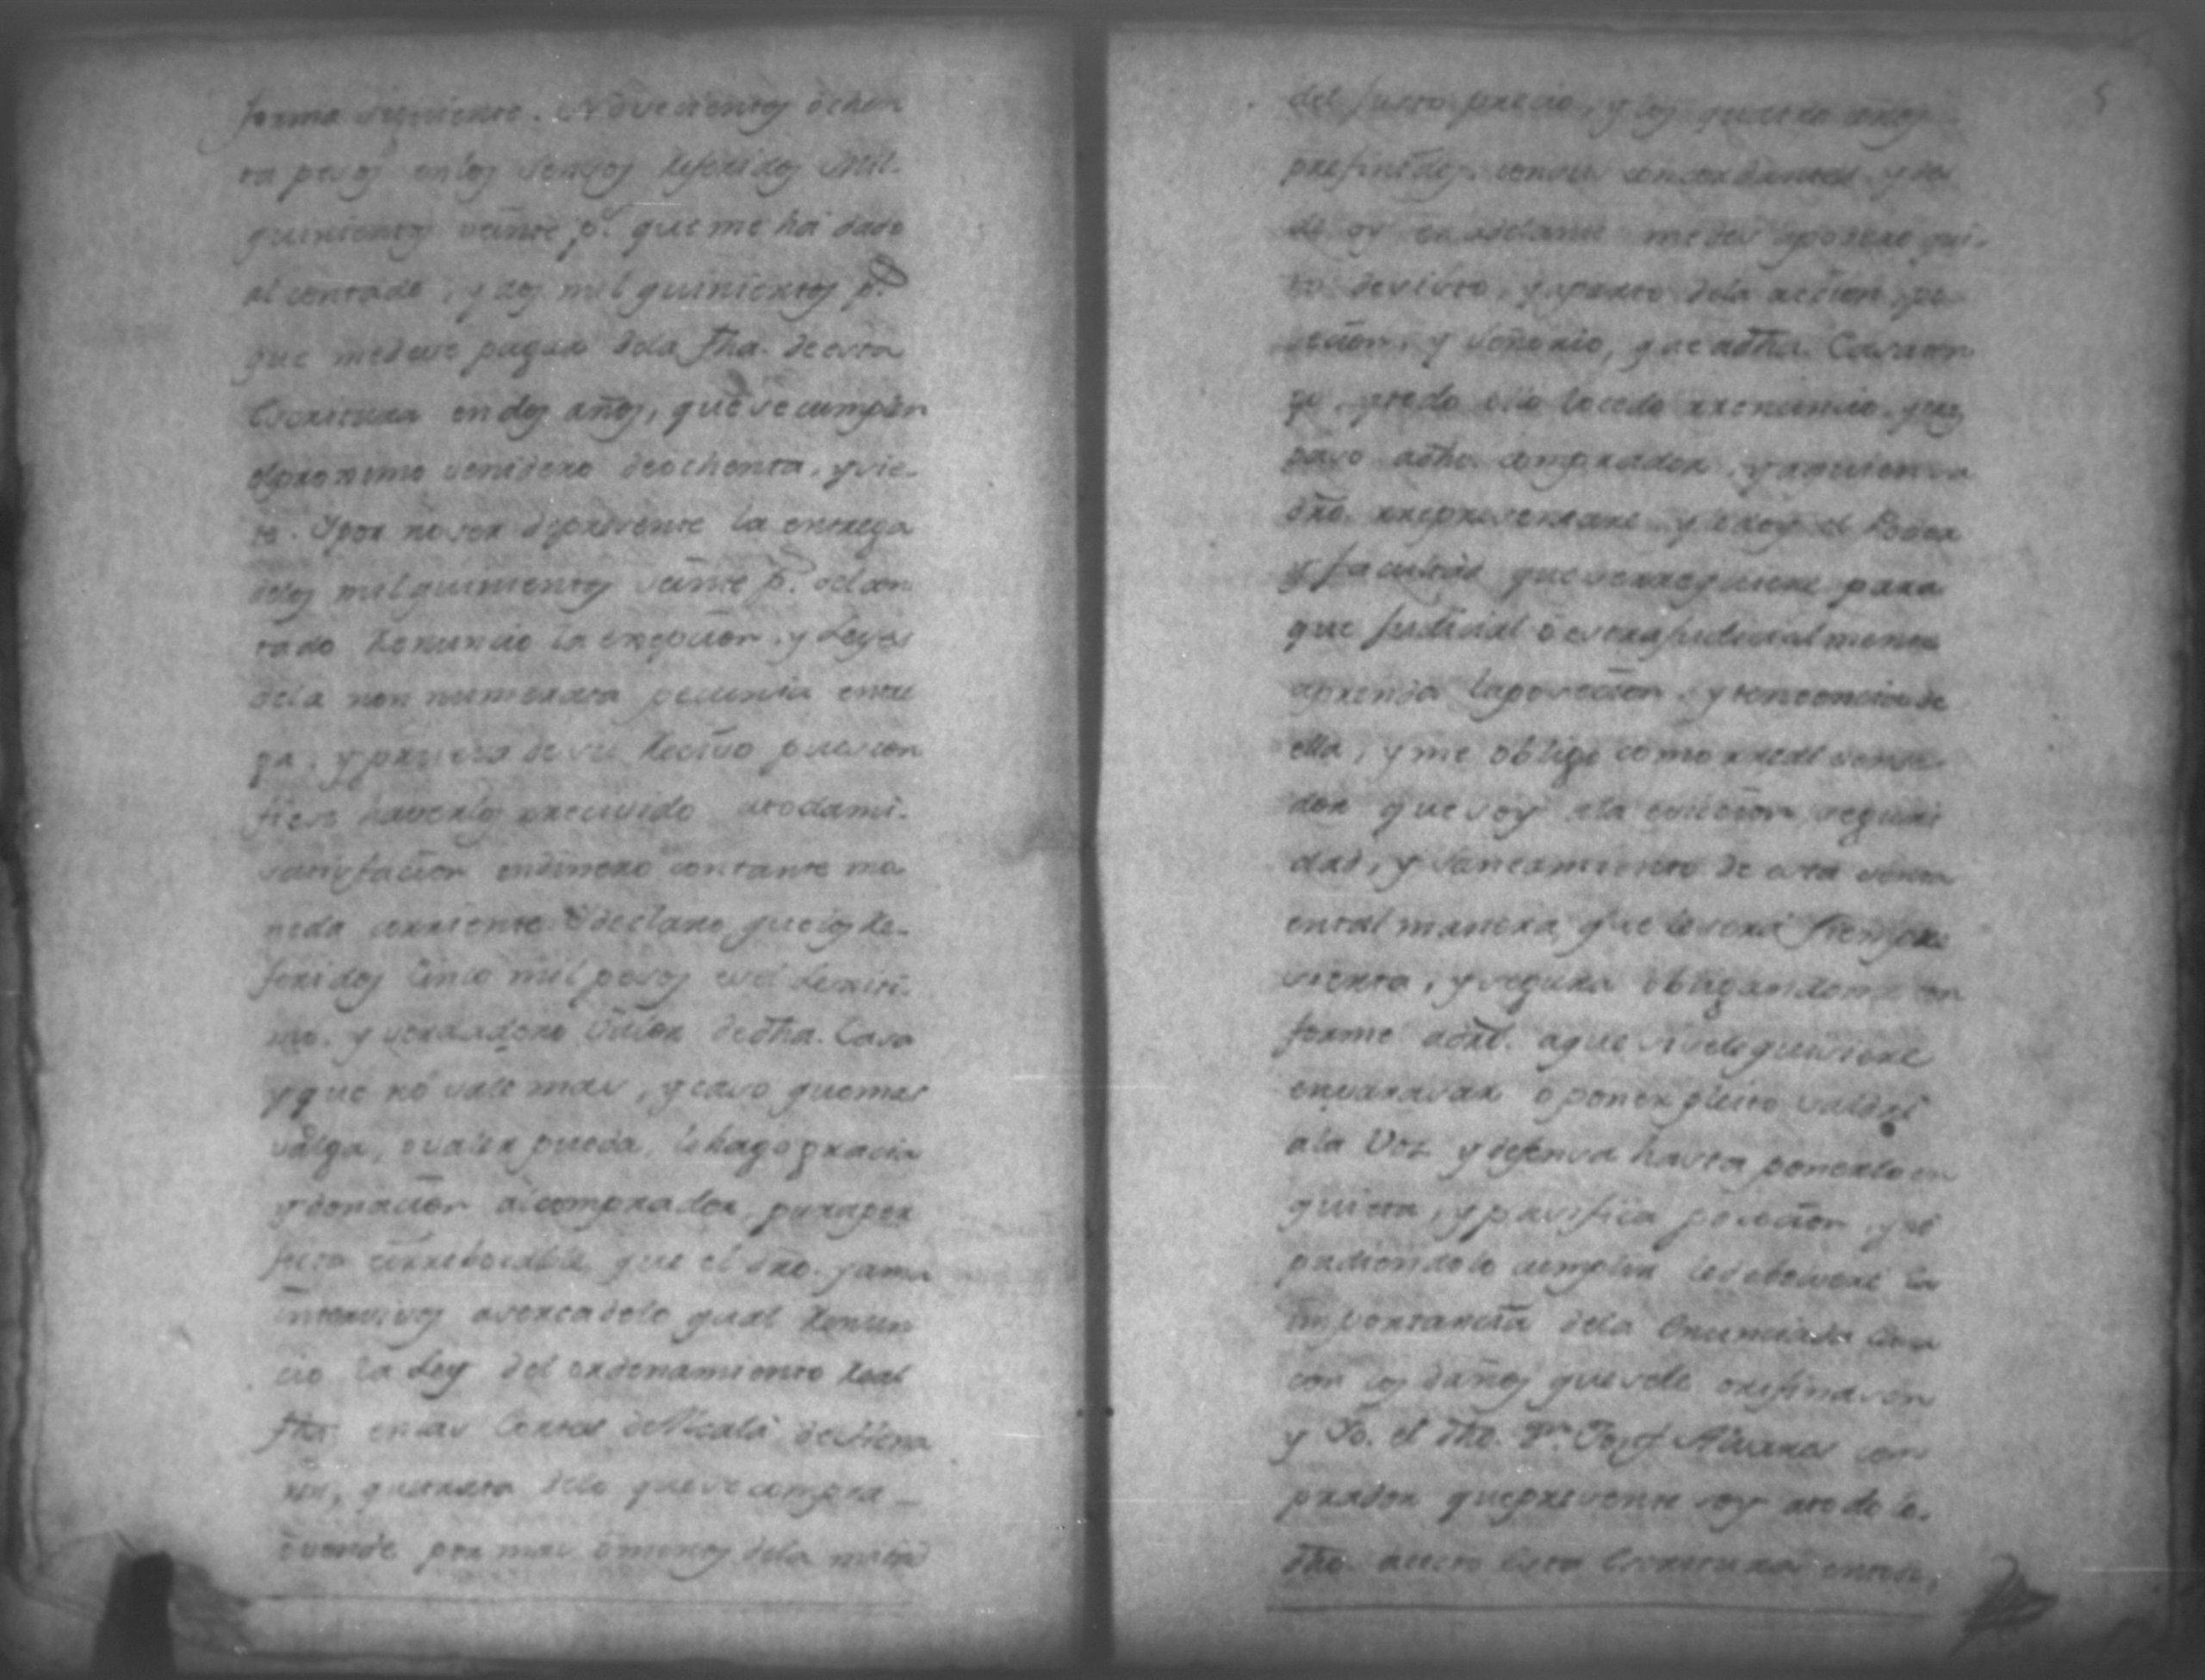 forma siguiente. Novecientos ochen
ta pesos en los sensos Referidos Mil-
quinientos veinte p.s que me há dado
al contado, y dos mil quinientos p.s
que medeve pagar dela fha. de esta
Escritura en dos años, que se cumplen
el proximo venidero deochenta, y sie-
te. Y por no ser depresente la entrega
delos mil quinientos veinte p.s del con
tado Renuncio la exepcion, y Leyes
dela non numerata pecunia entre
ga, y prueva de su Recivo
haverlos rrecivido atodami-
satisfacion endinero contante mo
neda corriente Y declaro que los Re-
feridos Cinco mil pesos es el
y verdadero Valor dedha. Casa
y que nó vale mas, y caso que mas
valga, o valer pueda, le hago gracia
y donacion al comprador, pura per
fecta irrebocable que el dro. llama
intervivos aserca delo qual Renun
cio la Ley del ordenamiento Real
fha en las Cortes de Alcalá de Hena
res, que trata delo que se compra-
o vende por mas o menos dela mitad
5
del justo precio, y los quatro años
prefinidos, con sus concordantes y des
de oy en adelante me des apodero qui-
to desisto, y aparto dela accion, po
secion, y señorio, que adha. Casa ten
go, y todo ello lo cedo rrenuncio, y tras
paso adho. comprador, y aquien su
dro. rrepresentare y le doy el Poder
y facultad que se rrequiere para
que judicial ó estrajudicialmente
aprenda la posecion, y tenencia de
ella, y me obligo como rreal vende-
dor que soy ala eviccion seguri
dad, y saneamiento de esta venta
ental manera que le será siempre
sierta, y segura obligandome con
forme adro. aque si sele quisiere
envarasar o poner pleito saldré
ala Voz y defensa hasta ponerlo en
quieta, y pasifica posecion, y nó
pudiendolo cumplir le debolveré la
importancia dela Enunciada
con los daños que sele orijinasen
y Yo. el dho. D.n Josef Alvares com
prador que presente soy atodo lo.
dho. acepto Esta Escritura